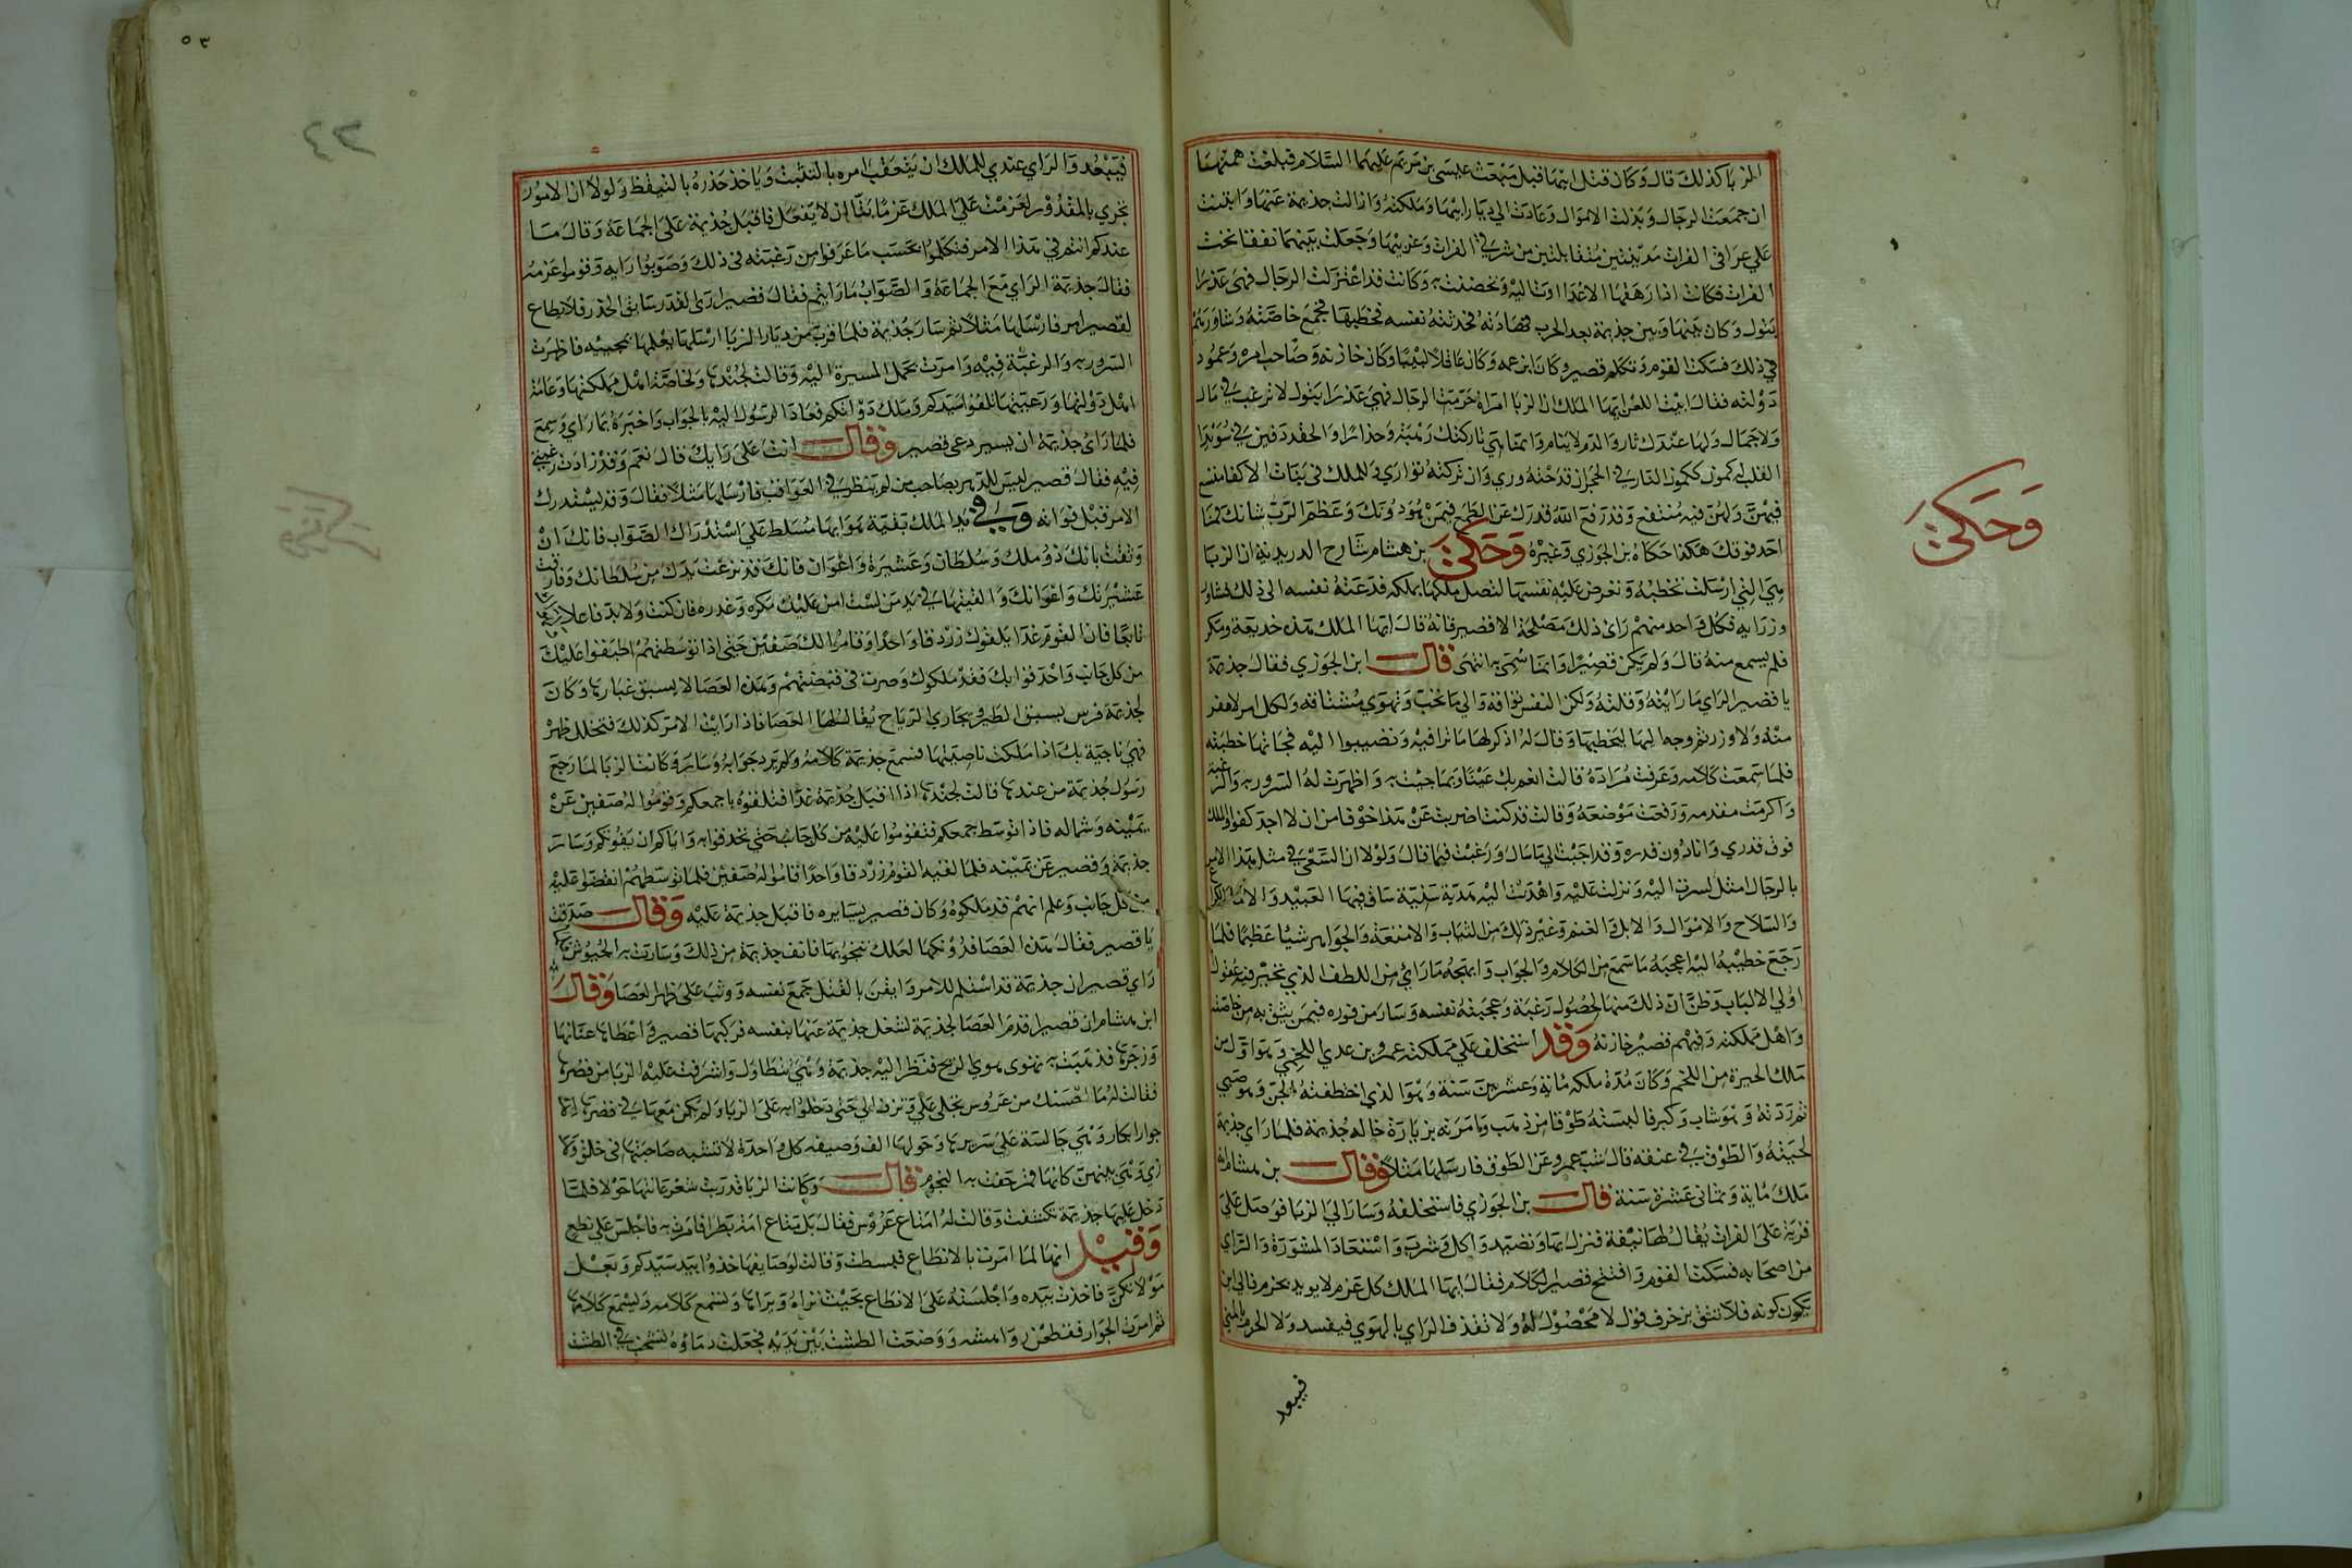 الزبا كذلك قال وكان قتل ابيها قبل مبعث عيسى بن مريم عليهما السلام فبلغت همتها
ان جمعت الرجال وبذلت الاموال وعادت الى ديار ابيها ومملكته وازالت جذيمة عنها وابتنت
على عراقى الفرات مدينتين متقابلتين من شرقي الفرات وغربيها وجعلت بينهما نفقا تحت
الفرات فكانت اذا رهقها الاعدا اوت اليه وتحصنت به وكانت قد اعتزلت الرجال فهى عذرا
بتول وكان بينها وبين جذيمة بعد الحرب مهادنة فحدثته نفسه بخطبها فجمع خاصته وشاورهم
في ذلك فسكت القوم وتكلم قصير وكان ابن عمه وكان عاقلا لبيبا وكان خازنه وصاحب امره وعمود
دولته فقال ابيت اللعن ايها الملك ان الزبا امراة حرمت الرجال فهي عذرا بتول لا ترغب في مال
ولا جمال ولها عندك ثار والدم لا ينام وانما هي تاركتك رهبة وحذارا والحقد دفين في سويدا
القلب له كمون ككمون النار في الحجر ان قدحته وري وان تركته توارى وللملك في بنات الاكفا متسع
فيهن ولهن فيه منتفع وقد رفع الله قدرك عن الطمع فيمن هو دونك وعظم الرب شانك فما
احد فوقك هكذا حكاه بن الجوزي وغيره وحكى بن هشام شارح الدريدية ان الزبا
هي التي ارسلت تخطبه وتعرض عليه نفسها لتصل ملكها بملكه فدعته نفسه الى ذلك فشاور
وزرايه فكل واحد منهم راى ذلك مصلحة الا قصير فانه قال ايها الملك هذه خديعة ومكر
فلم يسمع منه قال ولم يكن قصيرا وانما سمى به انتهى قال ابن الجوزي فقال جذيمة
يا قصير الراي ما رايته وقلته ولكن النفس تواقة والى ما تحب وتهوى مشتاقة ولكل امر لا مفر
منه ولا وزر ثم وجه اليها بخطبها وقال له اذكر لها ما ترا فيه وتصيبوا اليه فجاتها خطبته
فلما سمعت كلامه وعرفت مراده قالت انعم بك عينا وبما جيت به واظهرت له السرور به والرغبة
واكرمت مقدمه ورفعت موضعه وقالت قد كنت اضربت عن هذا خوفا من ان لا اجد كفوا والملك
فوق قدري وانا دون قدره وقد اجبت الى ما سال ورغبت فيما قال ولولا ان السعى في مثل هذا الامر
بالرجال امثل لسرت اليه ونزلت عليه واهدت اليه هدية سنية ساق فيها العبيد والاما والكراع
والسلاح والاموال والابل والغنم وغير ذلك من الثياب والامتعة والجواهر شيا عظيما فلما
رجع خطيبه اليه اعجبه ما سمع من الكلام والجواب وابهجه ما راى من اللطف الذي تحير فيه عقول
اولي الالباب وظن ان ذلك منها لحصول رغبة وعجبته نفسه وسار من فوره فيمن يثق به من خاصته
واهل مملكته وفيهم قصير خازنه وقد استخلف على مملكته عمرو بن عدي اللخمي وهو اول من
ملك الحيرة من اللخم وكان مدة ملكه ماية وعشرين سنة وهو الذي اختطفته الجن وهو صبي
ثم ردته وهو شاب وكبر فالبسته طوقا من ذهب وامرته بزيارة خاله جذيمة فلما راى جذيمة
لحيته والطوق في عنقه قال شب عمرو عن الطوق فارسلها مثلا وقال بن هشام انه
ملك ماية وثماني عشرة سنة قال بن الجوزي فاستخلفه وسار الى الزبا فوصل على
قرية على الفرات يقال لها نيفة فنزل بها وتصيد واكل وشرب واستعاد المشورة والراي
من اصحابه فسكت القوم وافتتح قصير الكلام فقال ايها الملك كل عزم لا يويد بحزم فالى اين
يكون كونه فلا تثق بزخرف قول لا محصول له ولا تقذف الراي بالهوى فيفسد ولا الحزم بالمنى
فيبعد
وحكى
٥٣
٤٢
فيبعد والراي عندي للملك ان يتعقب امره بالتثبت وياخذ حذره بالتيقظ ولولا ان الامور
تجري بالمقدور لعزمت على الملك عزما بتا ان لا يفعل فاقبل جذيمة على الجماعة وقال ما
عندكم انتم في هذا الامر فتكلموا بحسب ما عرفوا من رغبته في ذلك وصوبوا رايه وقووا عزمه
فقال جذيمة الراي مع الجماعة والصواب ما رايتم فقال قصير ارى القدر سابق الحذر فلا يطاع
لقصير امر فارسلها مثلا ثم سار جذيمة فلما قرب من ديار الزبا ارسل اليها يعلمها بمجييه فاظهرت
السرور به والرغبة فيه وامرت بحمل المسيرة اليه وقالت لجندها ولخاصة اهل مملكتها وعامة
اهل دولتها ورعيتها تلقوا سيدكم وملك دولتكم فعاد الرسول اليه بالجواب واخبره بما راى وسمع
فلما راى جذيمة ان يسير دعى قصير وقال انت على رايك قال نعم وقد زادت رغبتي
فيه فقال قصير ليس للدهر بصاحب من لم ينظر في العواقب فارسلها مثلا فقال وقد يستدرك
الامر قبل فواته وفي يد الملك بقية هو بها مسلط على استدراك الصواب فانك ان
وثقت بانك ذو ملك وسلطان وعشيرة واعوان فانك قد نزعت يدك من سلطانك وفارقت
عشيرتك واعوانك والقيتها في يد من لست امن عليك مكره وغدره فان كنت ولا بد فاعلا
تابعا فان القوم غدا يلقوك زردقا واحدا وقاموا لك صفين حتى اذا توسطتهم اطبقوا عليك
من كل جانب واحدقوا بك فقد ملكوك وصرت في قبضتهم وهذه العصا لا يسبق غبارها وكان
لجذيمة فرس يسبق الطير ويجاري الرياح يقال لها العصا فاذا رايت الامر كذلك فتجلل ظهرها
فهي ناجية بك اذا ملكت ناصيتها فسمع جذيمة كلامه ولم يرد جوابه وسار وكانت الزبا لما رجع
رسول جذيمة من عندها قالت لجندها اذا اقبل جذيمة غدا فتلقوه باجمعكم وقوموا له صفين عن
يمينه وشماله فاذا توسط جمعكم فتقوموا عليه من كل جانب حتى تحدقوا به واياكم ان يفوتكم وسار
جذيمة وقصير عن يمينه فلما لقيه القوم زردقا واحدا قاموا له صفين فلما توسطهم انقضوا عليه
من كل جانب وعلم انهم قد ملكوه وكان قصير يسايره فاقبل جذيمة عليه وقال صدقت
يا قصير فقال هذه العصا فدونكها لعلك تنجو بها فانف جذيمة من ذلك وسارت به الجيوش
راى قصير ان جذيمة قد استلم للامر وايقن بالقتل جمع نفسه ووثب على ظهر العصا وقال
ابن هشام ان قصيرا قدم العصا لجذيمة لشغل جذيمة عنها بنفسه فركبها قصير واعطاها عنانها
وزجرها فذهبت به تهوى هوي الريح فنظر اليه جذيمة وهي تتطاول واشرفت عليه الزبا من قصرها
فقالت له ما احسنك من عروس تجلى علي وتزف الي حتى دخلوا به على الزبا ولم يكن معها في قصرها الا
جوار ابكار وهي جالسة على سريرها وحولها الف وصيفه كل واحدة لا تشبه صاحبتها في خلق ولا
زي وهي بينهن كانها قمر حفت به النجوم قال وكانت الزبا قد ربت شعر عانتها حولا فلما
دخل عليها جذيمة تكشفت وقالت له امتاع عروس فقال بل متاع امة بظرا فامرت به فاجلس على نطع
وقيل انها لما امرت بالانطاع فبسطت وقالت لوصايفها خذوا بيد سيدكم وبعل
مولاتكن فاخذت بيده واجلسته على الانطاع بحيث تراه ويراها وتسمع كلامه ويسمع كلامها
ثم امرت الجوار فقطعن رواهشه ووضعت الطشت بين يديه فجعلت دماوه تشخب في الطشت